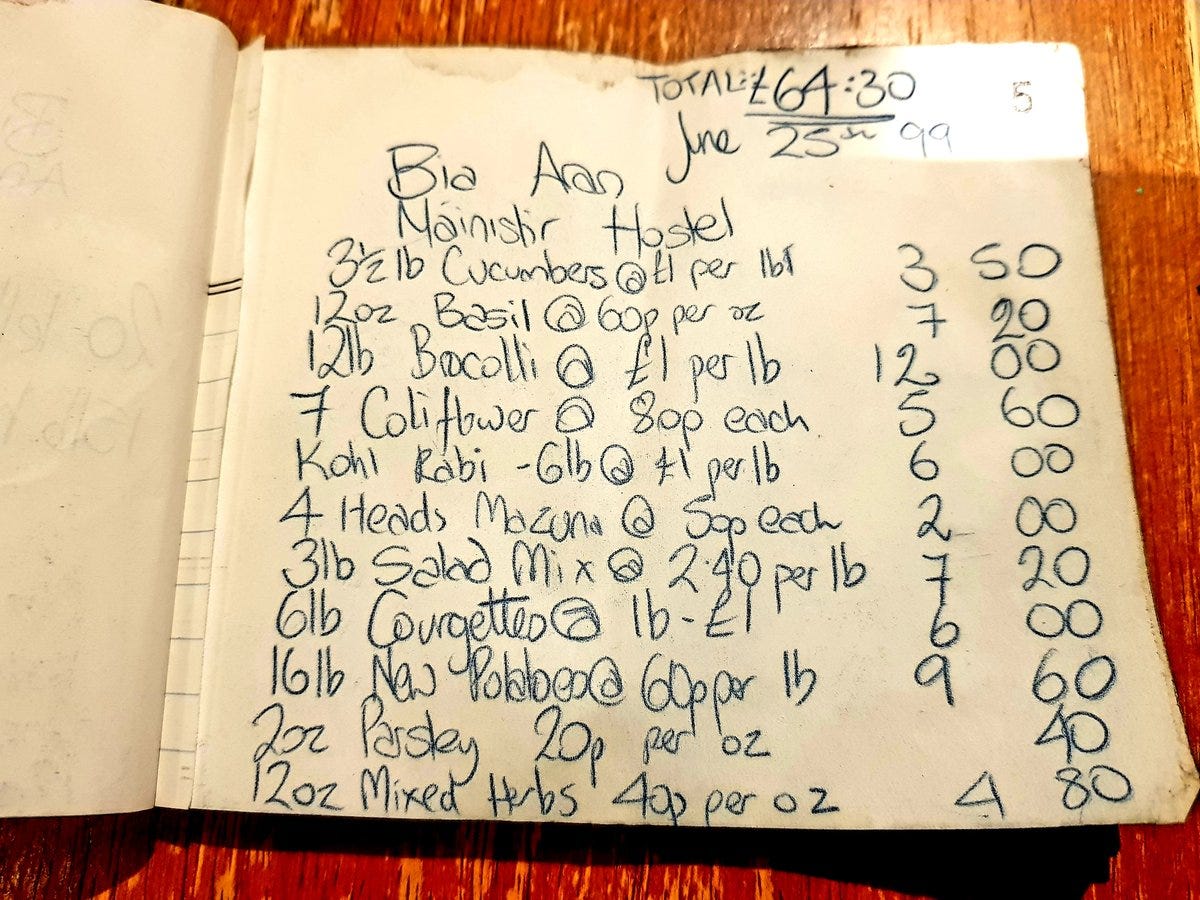 TOTAL: £64:30
5
June 25th 99
Bia Aran
Máinistir Hostel
3½ lb Cucumbers @ £1 per lb 3 50
12oz Basil @ 60p per oz 7 20
12lb Brocolli @ £1 per lb 12 00
7 Coliflower @ 80p each 5 60
Kohl Rabi - 6lb @ £1 per lb 6 00
4 Heads Mazuna @ 50p each 2 00
3lb Salad Mix @ 2.40 per lb 7 20
6lb Courgettes @ lb - £1 6 00
16lb New Potatoes @ 60p per lb 9 60
2oz Parsley 20p per oz 40
12oz Mixed Herbs 40p per oz 4 80